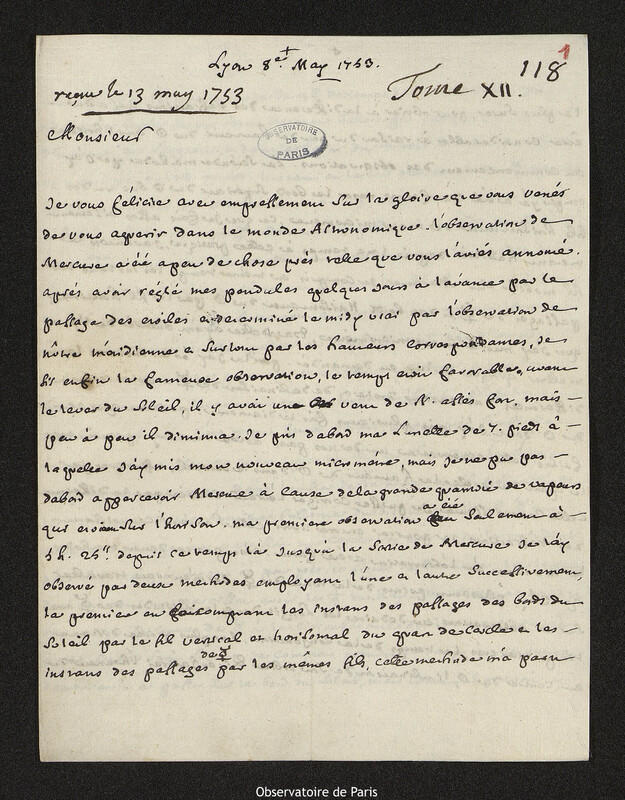 1
118
Lyon 8e. May 1753.
reçue le 13 may 1753
Tome XII.
Monsieur
OBSERVATOIRE
DE
PARIS
Je vous félicite avec empressement sur la gloire que vous venés
de vous aquerir dans le monde Astronomique. l'observation de
Mercure a été a peu de chose près telle que vous l'aviés annoncé.
aprés avoir réglé mes pendules quelques jours à l'avance par le
passage des etoiles et déterminé le midy vrai par l'observation de
nôtre méridienne et surtout par les hauteurs correspondantes, Je
fis enfin la fameuse observation, le temps etoit favorable, avant
le lever du Soleil, il y avoit un vent de N. assés fort, mais
peu à peu il diminua. Je pris dabord ma Lunette de 7. pieds à
laquelle J'ay mis mon nouveau micrométre, mais Je ne pu pas
dabord appercevoir Mercure à cause de la grande quantité de vapeurs
qui etoient sur l'horison. ma premiere observation a été seulement à
5 h. 25''. depuis ce temps là Jusqu'à la Sortie de Mercure Je l'ay
observé par deux methodes employant l'une et l'autre Successivement,
la premiere en comptant les instans des passages des bords du
Soleil par le fil vertical et horisontal du quart de Cercle et les
instans des passages de ☿ par les mêmes fils, cette methode m'a paru
Observatoire de Paris